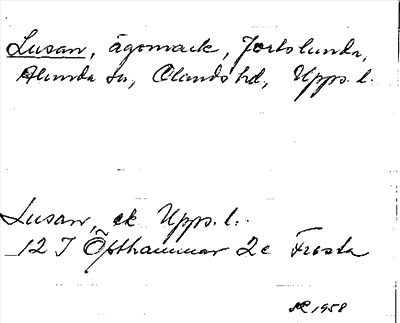 Lusan, ägomark, Jortslunda,
Alunda sn, Olands hd, Upps. l.
Lusan, ek Upps. l.
12 I Östhammar 2c Frosta
1958